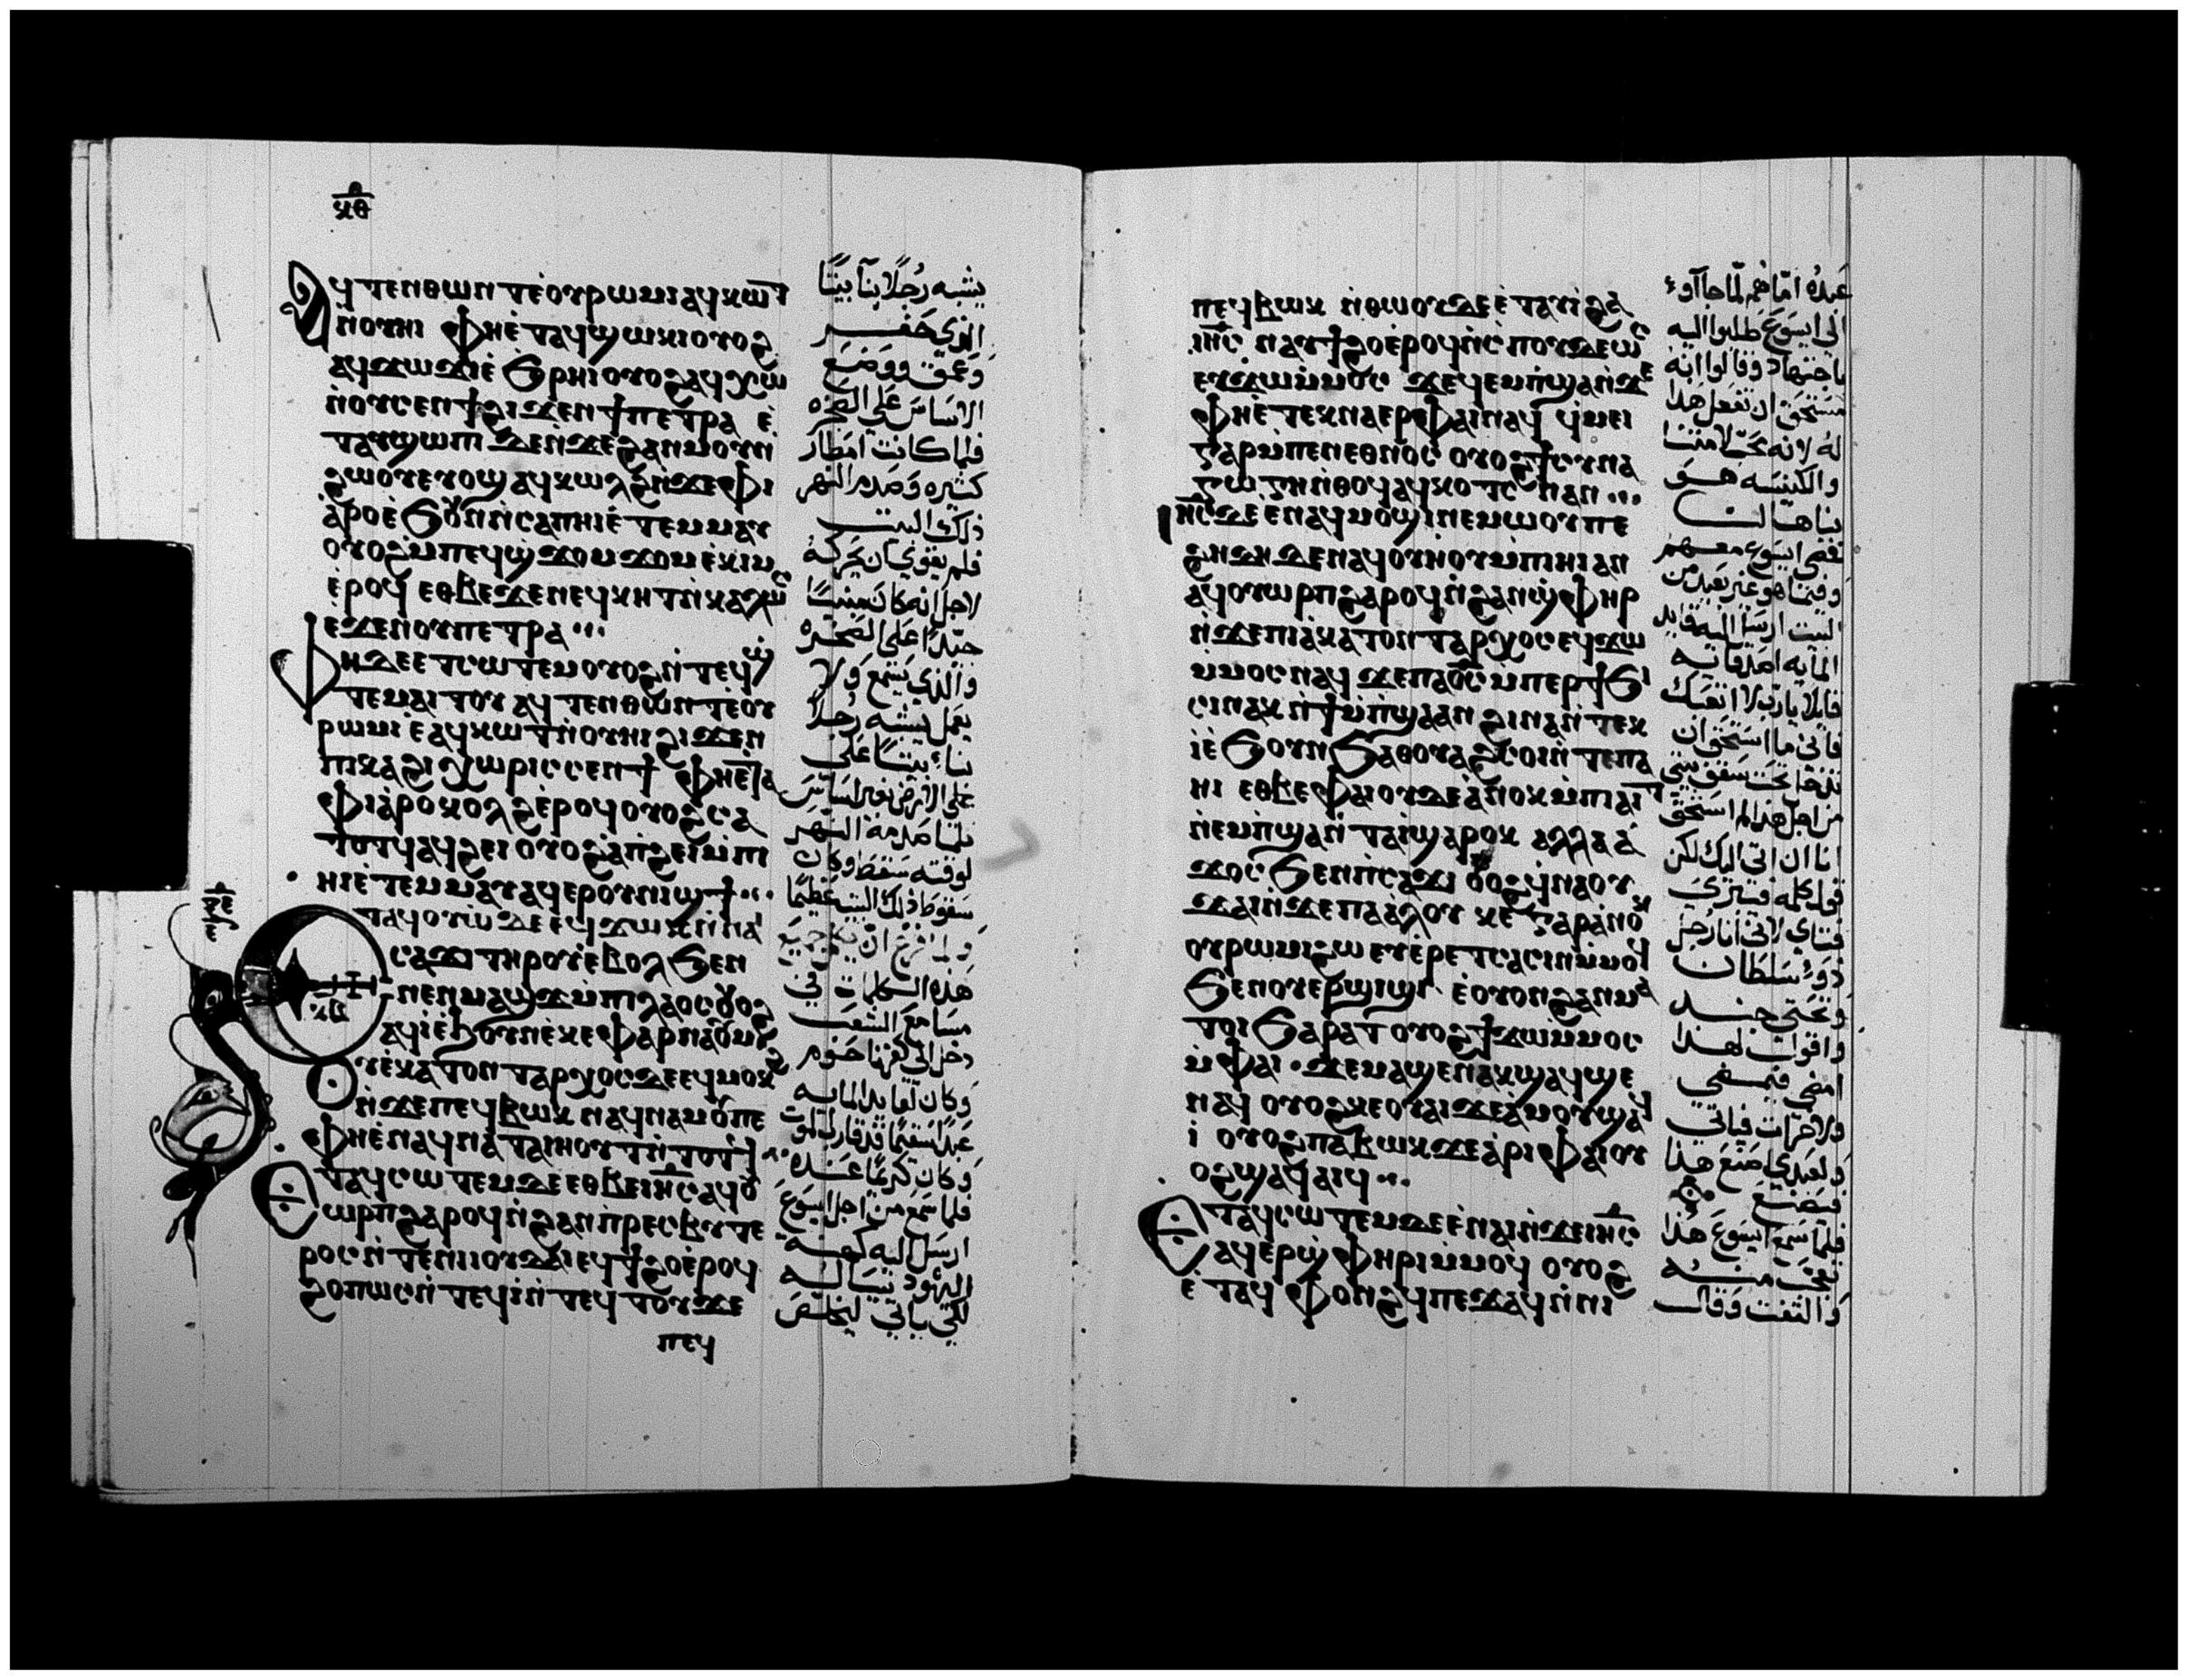 ⲕⲑ
ⲁϥⲧⲉⲛⲑⲱⲛⲧ ⲉ̀ⲟⲩⲣⲱⲙⲓ ⲁϥⲕⲱⲧ
ⲛ̀ⲟⲩⲏⲓ ⲫⲏⲉ̀ⲧⲁϥϣⲱⲕⲓ ⲟⲩⲟϩ
ⲁϥϫⲱϫⲓ ⲉ̀ϧⲣⲏⲓ ⲟⲩⲟϩ ⲁϥⲭⲱ
ⲛ̀ⲟⲩⲥⲉⲛϯ ϩⲓϫⲉⲛ ϯⲡⲉⲧⲣⲁ ⲉ̀
ⲧⲁⲩϣⲱⲡⲓ ⲇⲉ ⲛ̀ϫⲉ ϩⲁⲛⲙⲟⲩⲛ̀
ϩⲱⲟⲩ ⲉⲩⲟϣ ⲁϥⲕⲱⲗϩ ⲛ̀ϫⲉ ⲫⲓ
ⲁⲣⲟ ⲉ̀ϧⲟⲩⲛ ⲛ̀ⲥⲁ ⲡⲏⲓ ⲉ̀ⲧⲉⲙⲙⲁⲩ
ⲟⲩⲟϩ ⲙ̀ⲡⲉϥϣϫⲟⲙϫⲟⲙ ⲉ̀ⲕⲓⲙ
ⲉ̀ⲣⲟϥ ⲉⲑⲃⲉ ϫⲉ ⲛⲉϥⲕⲏⲧ ⲛ̀ⲕⲁⲗⲱⲥ
ⲉϫⲉⲛ ⲟⲩⲡⲉⲧⲣⲁ
ⲫⲏ ⲇⲉ ⲉⲧⲥⲱⲧⲉⲙ ⲟⲩⲟϩ ⲛ̀ⲧⲉϥϣ
ⲧⲉⲙⲁⲓⲧⲟⲩ ⲁϥⲧⲉⲛⲑⲱⲛⲧ ⲉ̀ⲟⲩ
ⲣⲱⲙⲓ ⲉ̀ⲁϥⲕⲱⲧ ⲛ̀ⲟⲩⲏⲓ ϩⲓϫⲉⲛ
ⲡⲓⲕⲁϩⲓ ⲭⲱⲣⲓⲥ ⲥⲉⲛϯ ⲫⲏⲉ̀ⲧⲁ
ⲫⲓⲁⲣⲟ ⲕⲟⲗϩ ⲉ̀ⲣⲟϥ ⲟⲩⲟϩ ⲥⲁ
ⲧⲟⲧϥ ⲁϥϩⲉⲓ ⲟⲩⲟϩ ⲁⲡϩⲉⲓ ⲙ̀ⲡⲓ
ⲏⲓ ⲉ̀ⲧⲉⲙⲙⲁⲩ ⲁϥⲉⲣⲟⲩⲛⲓϣϯ
ⲉⲧⲁϥⲟⲩⲱ ⲇⲉ ⲉϥϫⲱⲕ ⲛ̀ⲛⲁⲓ
ⲥⲁϫⲓ ⲧⲏⲣⲟⲩ ⲉ̀ⲃⲟⲗ ϧⲉⲛ
ⲛⲉⲛⲙⲁϣϫ ⲙ̀ⲡⲓⲗⲁⲟⲥ ⲟⲩⲟϩ
ⲁϥⲓ̀ ⲉ̀ϧⲟⲩⲛ ⲉ̀ⲕⲉⲫⲁⲣⲛⲁⲟⲩⲙ
ⲟⲩⲉ̀ⲕⲁⲧⲟⲛⲧⲁⲣⲭⲟⲥ ⲇⲉ ⲉϥⲙⲟⲕϩ
ⲛ̀ϫⲉ ⲡⲉϥⲃⲱⲕ ⲛⲁϥⲛⲁⲙⲟⲩ ⲡⲉ
ⲫⲏⲉ̀ⲛⲁϥⲛⲁⲧⲁⲓⲏⲟⲩⲧ ⲛ̀ⲧⲟⲧϥ
ⲉⲧⲁϥⲥⲱⲧⲉⲙ ⲇⲉ ⲉⲑⲃⲉ ⲓⲏⲥ ⲁϥⲟⲩ
ⲱⲣⲡ ϩⲁⲣⲟϥ ⲛ̀ϩⲁⲛⲡⲣⲉⲥⲃⲩⲧⲉ
ⲣⲟⲥ ⲛ̀ⲧⲉ ⲛⲓⲓⲟⲩⲇⲁⲓ ⲉⲩϯϩⲟ ⲉ̀ⲣⲟϥ
ϩⲟⲡⲱⲥ ⲛ̀ⲧⲉϥⲓ̀ ⲛ̀ⲧⲉϥⲧⲟⲩϫⲉ
ⲡⲉϥ
يشبه رجلًا بنآ بيتًا
الذي حفر
وعمق ووضع
الاساس على الصخره
فلما كانت امطار
كثيره وصدم النهر
ذلك البيت
فلم يقوى ان يحركه
لاجل انه كان مبنيًا
جيدًا على الصخره
والذي يسمع ولا
يعمل يشبه رجلًا
بناء بيتًا على
على الارض بغير اساس
فلما صدمه النهر
لوقته سقط وكان
سقوط ذلك البيت عظيمًا
ولما فرغ ان يكل جميع
هذه الكلمات في
مسامع الشعب
دخل الى كفرناحوم
وكان لقايد المايه
عبدًا سقيمًا قد قارب الموت
وكان كريمًا عنده
فلما سمع من اجل ايسوع
ارسل اليه كهنه
اليهود يساله
لكي ياتي ليخلص
ⲡⲉϥⲃⲱⲕ ⲛ̀ⲑⲱⲟⲩ ⲇⲉ ⲉ̀ⲧⲁⲩⲓ̀ ϩⲁ
ⲓⲏⲥ ⲛⲁⲩϯϩⲟ ⲉ̀ⲣⲟϥ ⲛ̀ⲥⲡⲟⲩⲇⲉⲱⲥ
ⲉⲩϫⲱ ⲙ̀ⲙⲟⲥ ϫⲉ ϥⲉⲙⲡϣⲁ ⲛ̀ϫⲉ
ⲫⲏⲉ̀ⲧⲉⲕⲛⲁⲉⲣ ⲫⲁⲓ ⲛⲁϥ ϥⲙⲉⲓ
ⲅⲁⲣ ⲙ̀ⲡⲉⲛⲉⲑⲛⲟⲥ ⲟⲩⲟϩ ϯⲥⲩⲛⲁ
ⲅⲱⲅⲏ ⲛ̀ⲑⲟϥ ⲁϥⲕⲟⲧⲥ ⲛⲁⲛ
ⲓⲏⲥ ⲇⲉ ⲉⲛⲁϥⲙⲟϣⲓ ⲛⲉⲙⲱⲟⲩ ⲡⲉ
ϩⲏⲇⲏ ⲇⲉ ⲛⲁϥⲟⲩⲏⲟⲩ ⲙ̀ⲡⲓⲏⲓ ⲁⲛ
ⲁϥⲟⲩⲱⲣⲡ ϩⲁⲣⲟϥ ⲛ̀ϩⲁⲛϣⲫⲏⲣ
ⲛ̀ϫⲉ ⲡⲓⲁⲕⲁⲧⲟⲛⲧⲁⲣⲭⲟⲥ ⲉϥϫⲱ
ⲙ̀ⲙⲟⲥ ⲛⲁϥ ϫⲉ ⲡⲁⲟ̅ⲥ̅ ⲙ̀ⲡⲉⲣϯϧⲓ
ⲥⲓ ⲛⲁⲕ ⲛ̀ϯⲙ̀ⲡϣⲁ ⲁⲛ ϩⲓⲛⲁ ⲛ̀ⲧⲉⲕ
ⲓ̀ ⲉ̀ϧⲟⲩⲛ ϧⲁ ⲑⲟⲩⲁϩⲥⲟⲓ ⲛ̀ⲧⲉ ⲡⲁ
ⲏⲓ ⲉⲑⲃⲉ ⲫⲁⲓ ⲟⲩⲇⲉ ⲁ̀ⲛⲟⲕ ⲙ̀ⲡⲓⲁⲓⲧ
ⲛ̀ⲉⲙⲡϣⲁ ⲛ̀ⲧⲁⲓ̀ ϣⲁⲣⲟⲕ ⲁⲗⲗⲁ ⲁ̀
ϫⲟⲥ ϧⲉⲛ ⲡⲥⲁϫⲓ ⲟⲩⲟϩ ϥⲛⲁⲟⲩ
ϫⲁⲓ ⲛ̀ϫⲉ ⲡⲁⲁ̀ⲗⲟⲩ ⲕⲉ ⲅⲁⲣ ⲁ̀ⲛⲟⲕ
ⲟⲩⲣⲱⲙⲓ ϩⲱ ⲉⲩⲉⲣⲉⲧⲥⲁⲥⲓⲛ ⲙ̀ⲙⲟϥ
ϧⲉⲛ ⲟⲩⲉⲣϣⲓϣⲓ ⲉ̀ⲟⲩⲟⲛ ϩⲁⲛⲙⲁ
ⲧⲟⲓ ϧⲁⲣⲁⲧ ⲟⲩⲟϩ ϯϫⲱ ⲙ̀ⲙⲟⲥ
ⲙ̀ⲫⲁⲓ ϫⲉ ⲙⲁϣⲉ ⲛⲁⲕ ϣⲁϥϣⲉ
ⲛⲁϥ ⲟⲩⲟϩ ⲕⲉⲟⲩⲁⲓ ϫⲉ ⲁ̀ⲙⲟⲩ ϣⲁϥ
ⲓ̀ ⲟⲩⲟϩ ⲡⲁⲃⲱⲕ ϫⲉ ⲁ̀ⲣⲓ ⲫⲁⲓ ⲟⲩ
ⲟϩ ϣⲁϥⲁⲓϥ
ⲉⲧⲁϥⲥⲱⲧⲉⲙ ⲇⲉ ⲉ̀ⲛⲁⲓ ⲛ̀ϫⲉ ⲓⲏⲥ
ⲁϥⲉⲣϣⲫⲏⲣⲓ ⲙ̀ⲙⲟϥ ⲟⲩⲟϩ
ⲉ̀ⲧⲁϥⲫⲟⲛϩϥ ⲡⲉϫⲁϥ ⲛ̀ⲛⲓ
عبده امّا هم لمّا جآآوء
الى ايسوع طلبوا اليه
باجتهاد وقالوا انه
مستحق ان تفعل هذا
له لانه محبّ لامتنا
والكنيسه هو
بناها لنا
فمضى ايسوع معهم
وفيما هو غير بعيد من
البيت ارسل اليه قايد
المايه اصدقايه
قايلا يا رب لا تتعب
فاني ما استحق ان
تدخل تحت سقف بيتي
من اجل هذا لم استحق
انا ان اتي اليك لكن
قول كلمه فيبرى
فتاي لاني انا رجل
ذوء سلطان
وتحتي جند
واقول لهذا
امضي فيمضي
ولاخر ات فياتي
ولعبدي اصنع هذا
فيصنع
فلما سمع ايسوع هذا
تعجب منه
والتفت وقال